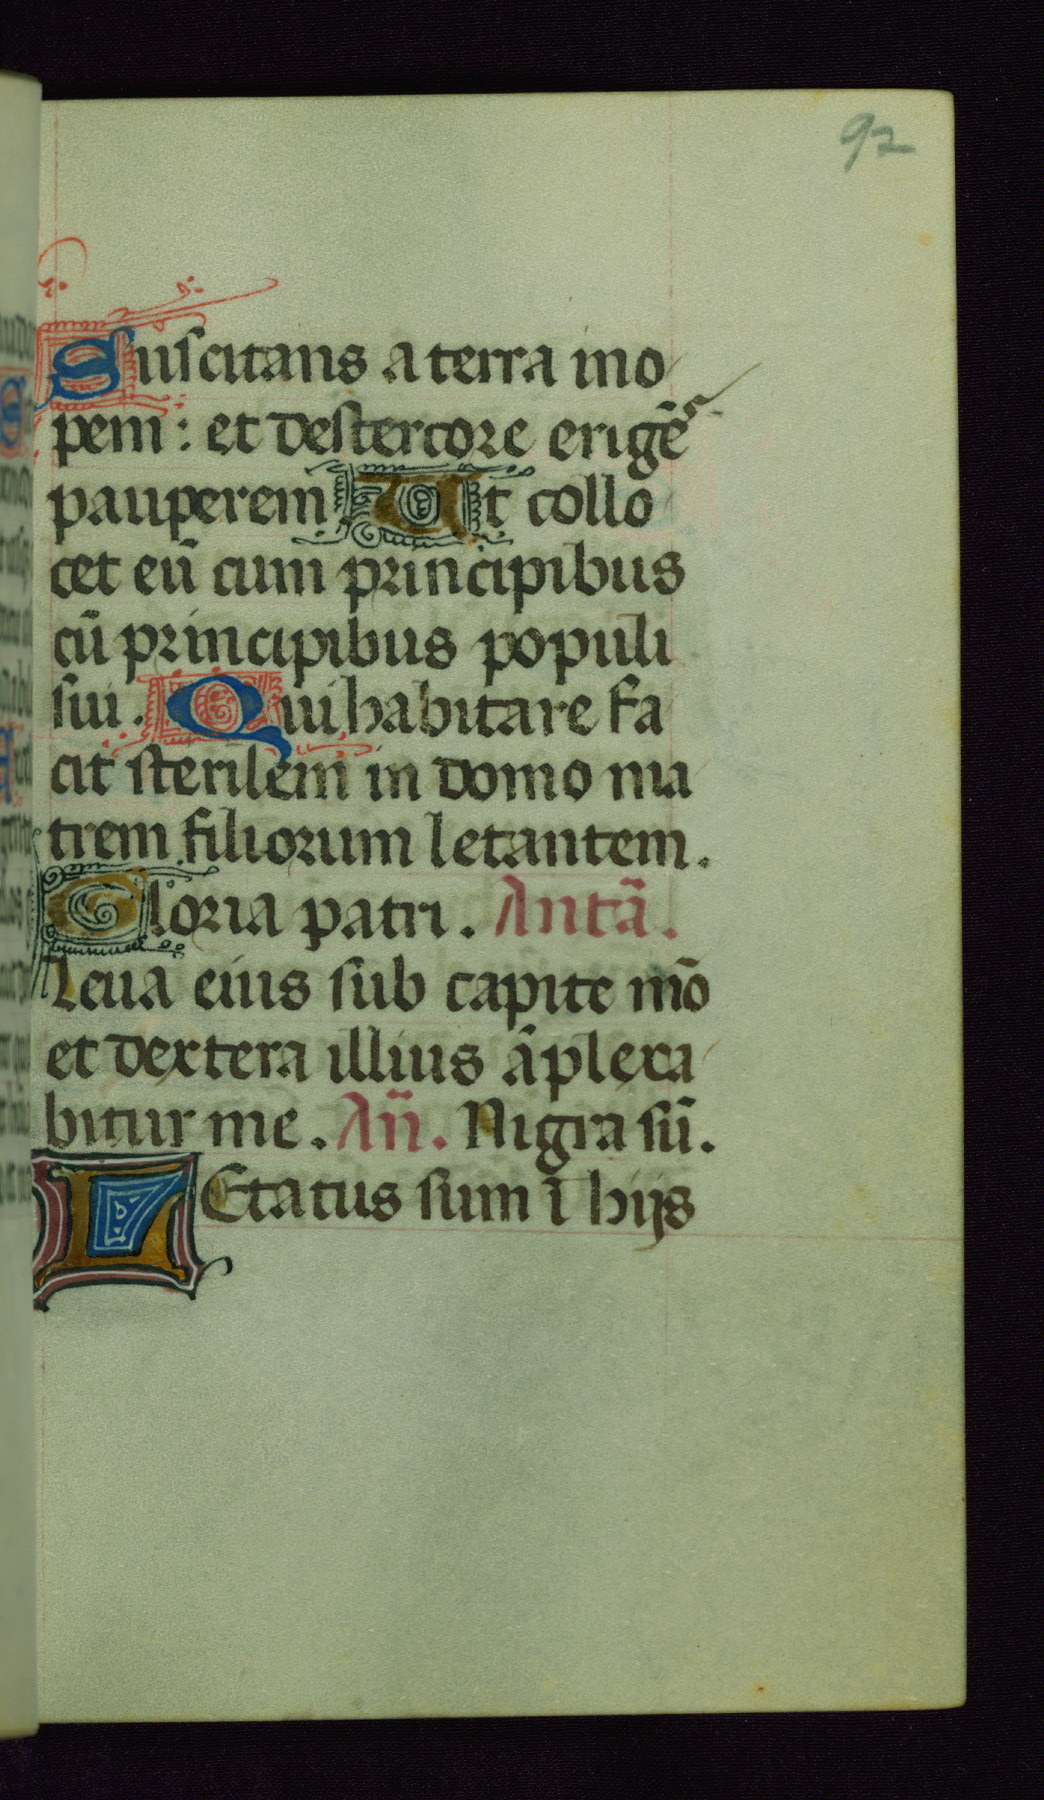 92
Suscitans a terra ino
pem : et de stercore erigēs
pauperem Ut collo
cet eū cum principibus
cū principibus populi
sui . Qui habitare fa
cit sterilem in domo ma
trem filiorum letantem .
Gloria patri . Antā .
Leua eius sub capite mō
et dextera illius āplexa
bitur me . An̄ . Nigra sū .
LEtatus sum ī hijs